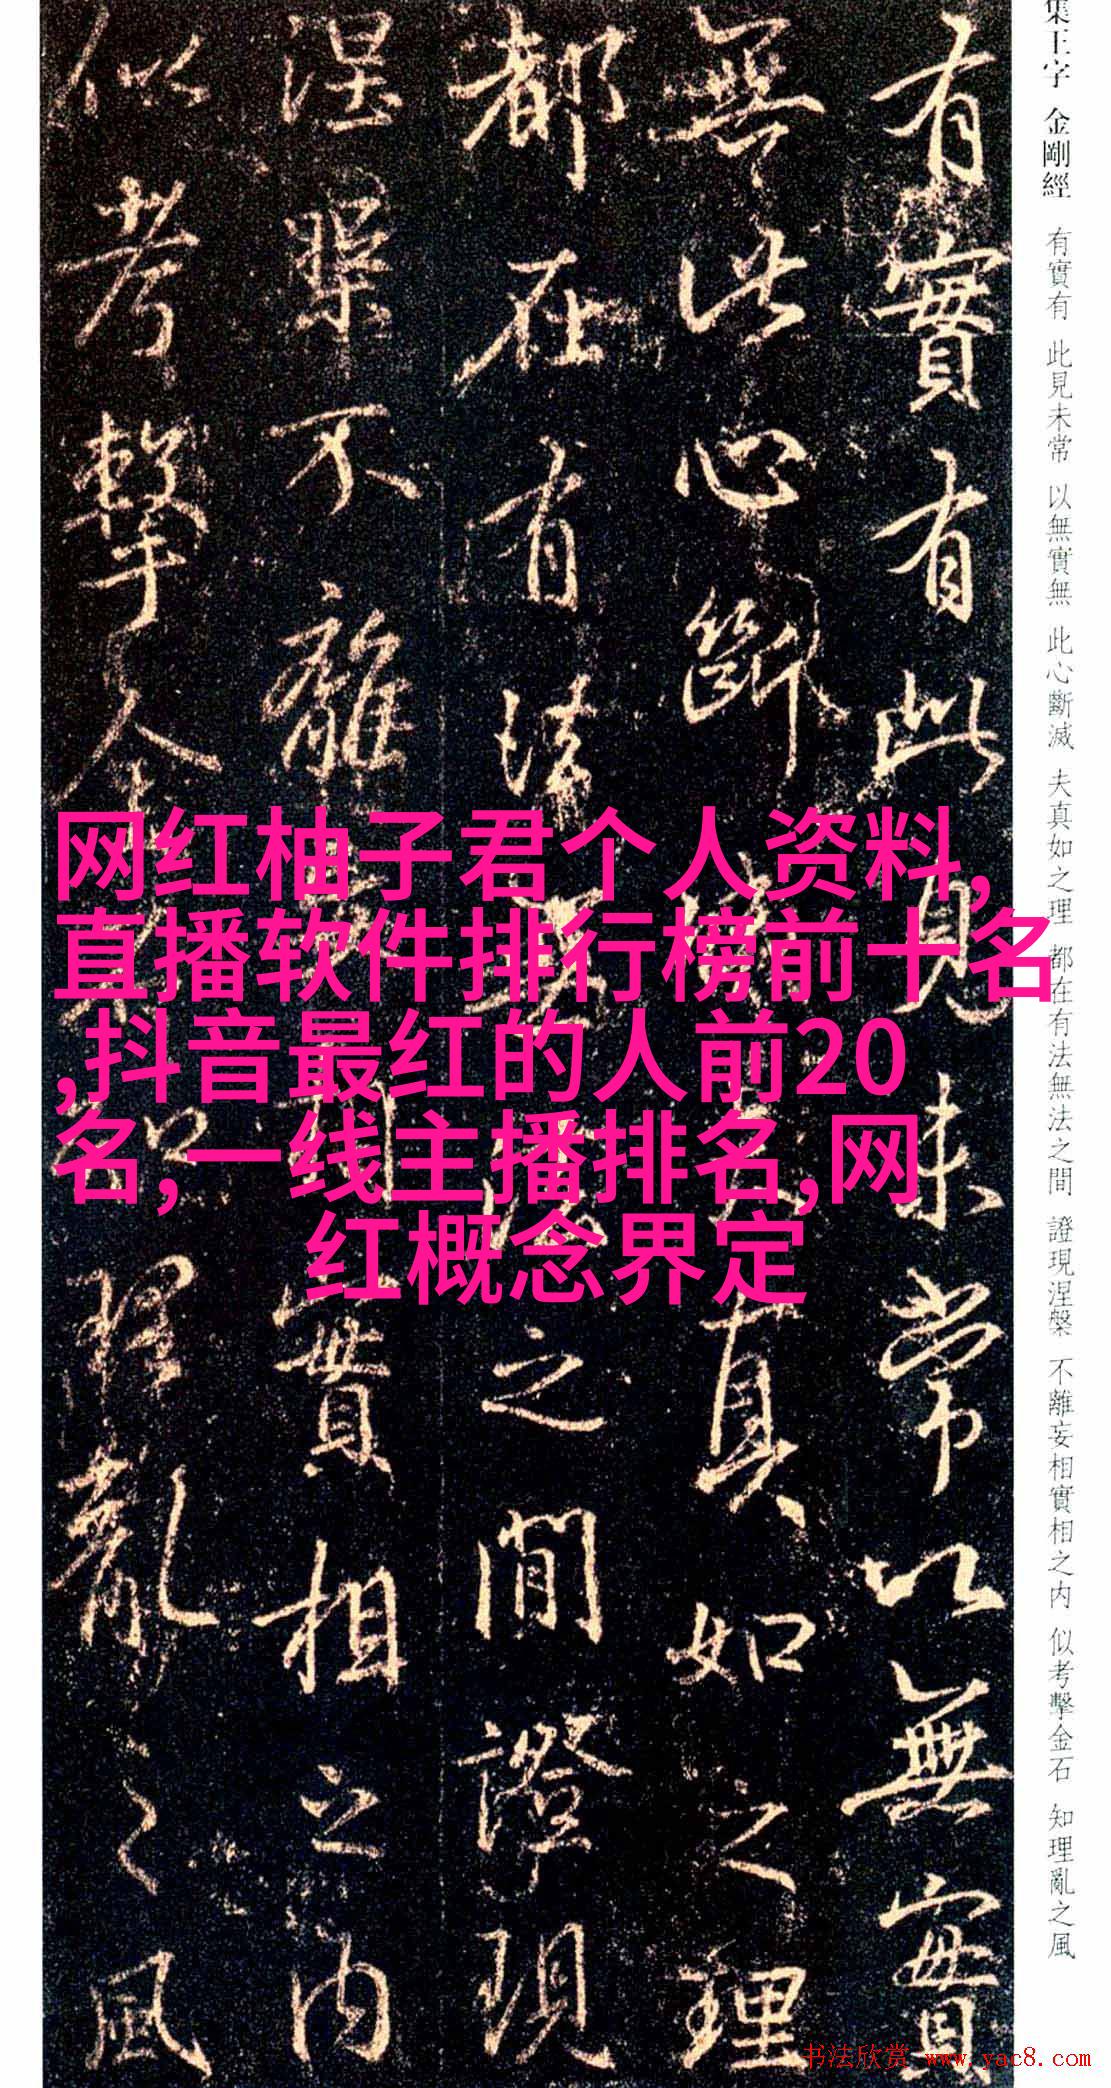 集王字 金剛經 有實有 此見未常 以無實無 此心斷滅 夫真如之理 都在有法無法之間 證現涅槃 不離妄相實相之内 似考擊金石 知理亂之風
有實有此見未常以無實
無此心斷滅夫真如之理
都在有法無法之間證現
涅槃不離妄相實相之内
似考擊金石知理亂之風
网红柚子君个人资料,
直播软件排行榜前十名
,抖音最红的人前20
名,一线主播排名,网
红概念界定
书法欣赏 www.yac8.com